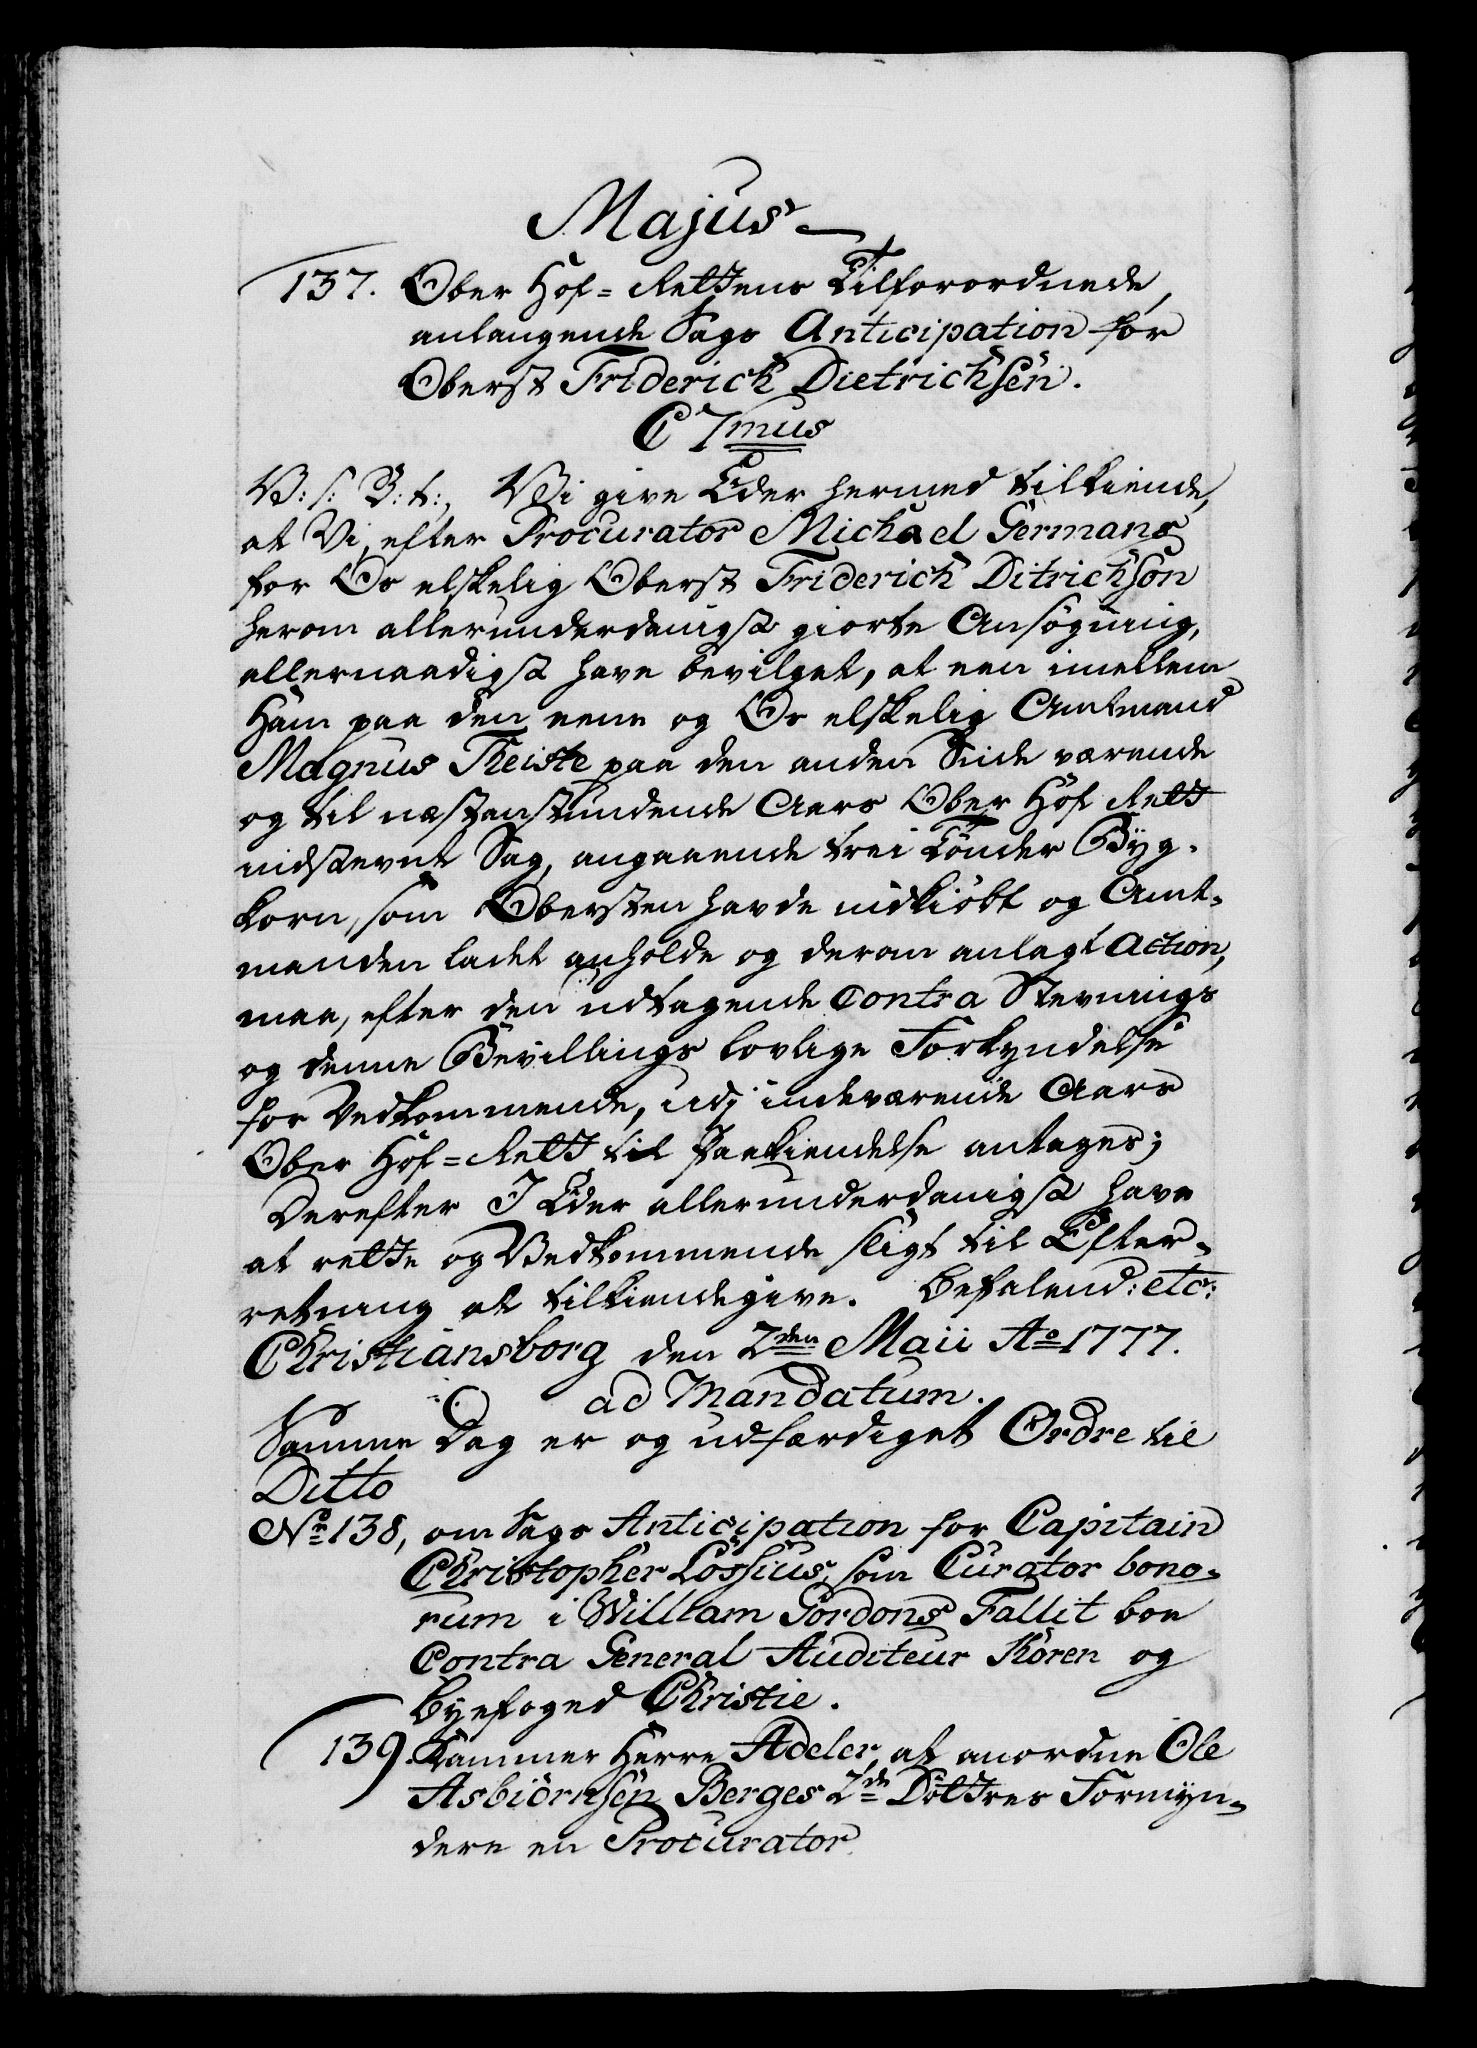 Majus
137. Ober Hof=Rettens Tilforordnede,
anlangende Sags Anticipation for
Oberst Friderich Dietrichsen.
C 7mus
V: s: G: t:, Vi give Eder hermed tilkiende,
at Vi, efter Procurator Michael Germans
for Os elskelig Oberst Friderich Ditrichson
herom allerunderdanigst giorte Ansøgning,
allernaadigst have bevilget, at een imellem
Ham paa den eene og Os elskelig Amtmand
Magnus Theiste paa den anden Side værende
og til næstanstundende Aars Ober Hof Rett
indstevnt Sag, angaaende trei Tønder Byg-
korn, som Obersten havde indkiøbt og Amt-
manden ladet anholde og derom anlagt Action,
maa, efter den udtagende Contra Stevnings
og denne Bevillings lovlige Forkyndelse
for Vedkommende, udj indeværende Aars
Ober Hof=Rett til Paakiendelse antages;
Derefter I Eder allerunderdanigst have
at rette og Vedkommende sligt til Efter-
retning at tilkiendegive. Befalend: etc:
Christiansborg den 2den Maii Ao 1777.
ad Mandatum.
Samme Dag er og udfærdiget Ordre til
Ditto
No 138, om Sags Anticipation for Capitain
Christopher Lossius, som Curator bono-
rum i William Gordons Fallit boe
Contra General Auditeur Koren og
Byefoged Christie.
139. Kammer Herre Adeler, at anordne Ole
Asbiörnsen Berges 2de Döttres Formyn-
dere en Procurator.